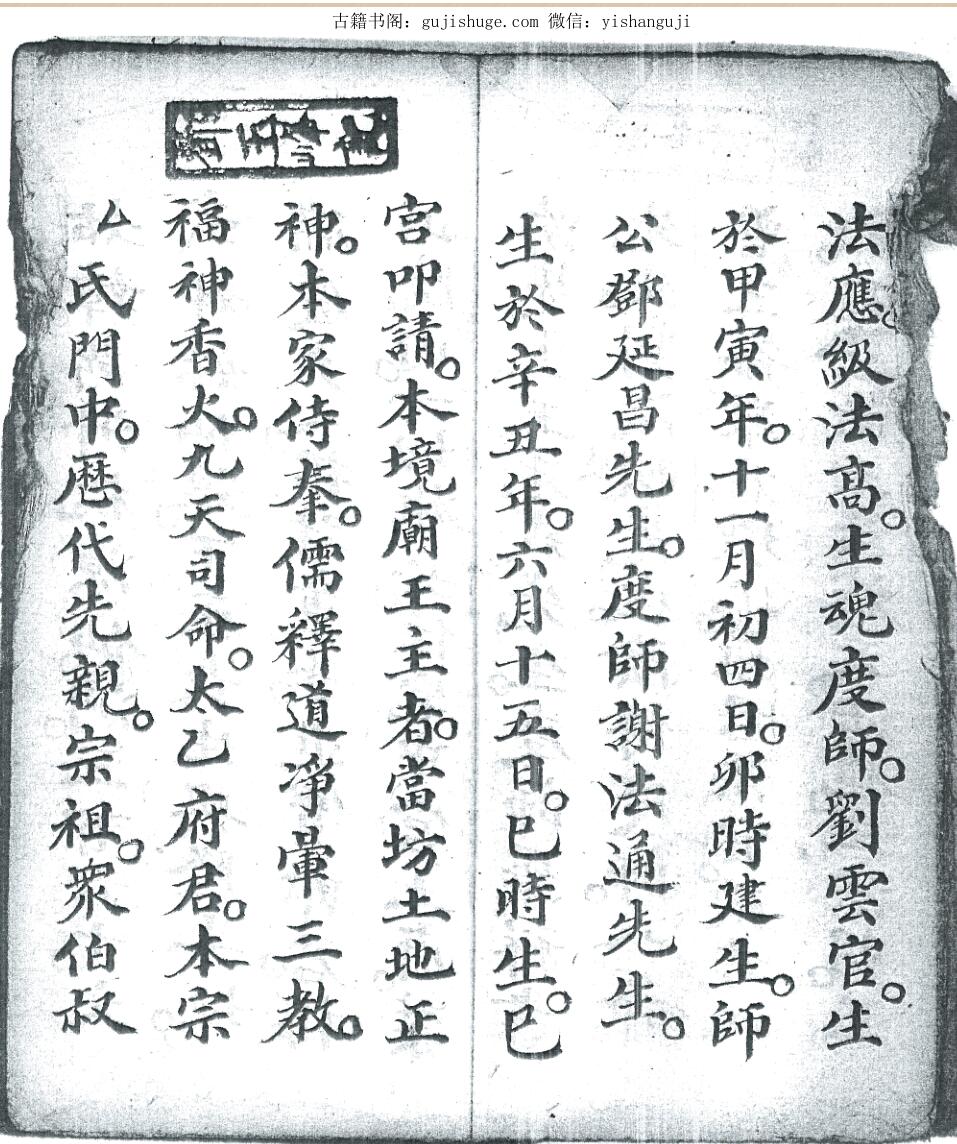 古籍书阁：gujishuge.com 微信：yishanguji
法應。級法高。生魂度師。劉雲官。生
於甲寅年。十一月初四日。卯時建生。師
公鄧延昌先生。度師謝法通先生。
生於辛丑年。六月十五日。巳時生。巳
宮叩請。本境廟王主者。當坊土地正
神。本家侍奉。儒釋道淨暈三教。
福神香火。九天司命。太乙府君。本宗
厶氏門中。歷代先親。宗祖。衆伯叔